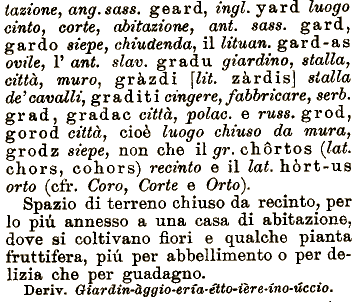 tazione, ang. sass. geard, ingl. yard luogo
cinto, corte, abitazione, ant. sass. gard,
gardo siepe, chiudenda, il lituan. gard-as
ovile, l' ant. slav. gradu giardino, stalla,
città, muro, gràzdi [lit. zàrdis] stalla
de' cavalli, graditi cingere, fabbricare, serb.
grad, gradac città, polac. e russ. grod,
gorod città, cioè luogo chiuso da mura,
grodz siepe, non che il gr. chôrtos (lat.
chors, cohors) recinto e il lat. hòrt-us
orto (cfr. Coro, Corte e Orto).
Spazio di terreno chiuso da recinto, per
lo piú annesso a una casa di abitazione,
dove si coltivano fiori e qualche pianta
fruttifera, piú per abbellimento o per de-
lizia che per guadagno.
Deriv. Giardin-àggio-ería-étto-ière-íno-úccio.